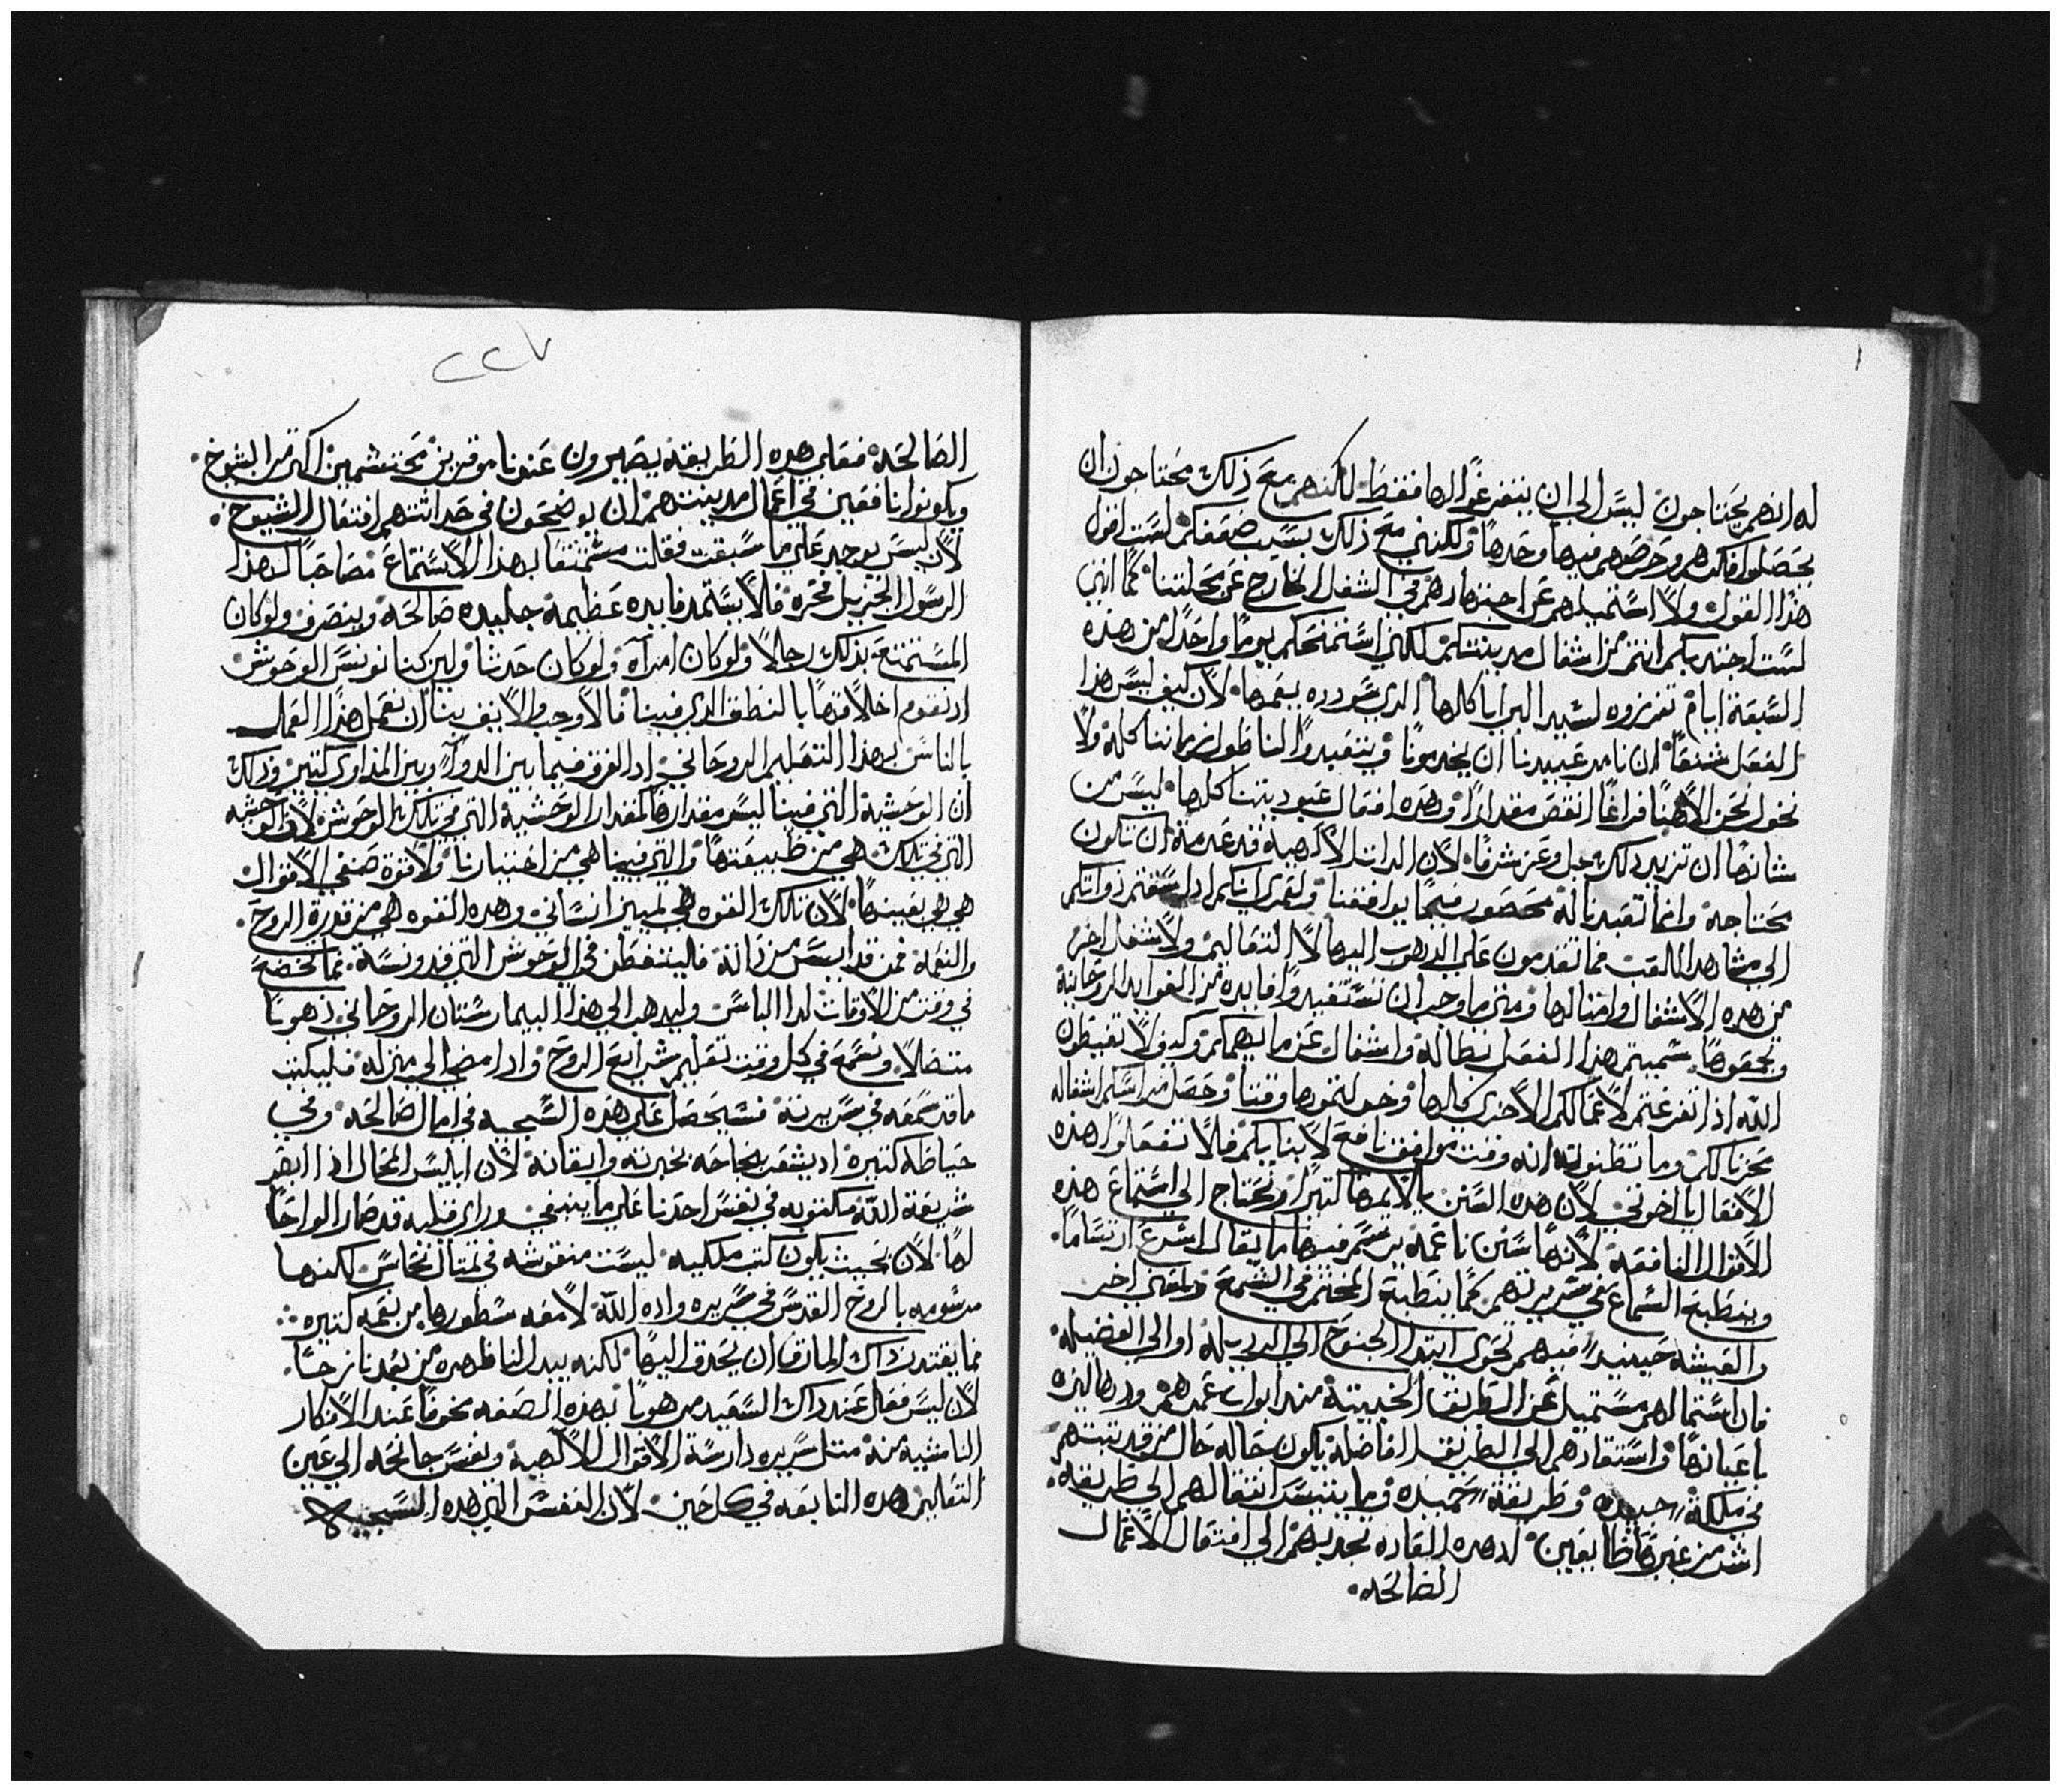 له انهم يحتاجون ليس الى ان يتفرغوا لها فقط لاكنهم مع ذلك محتاجون ان
يحصلوا فكرهم وحرصهم فيها وحدها ولكنني مع ذلك بسبب ضعفكم لست اقول
هذا القول ولا استميلهم عن اجتهادهم في الشغل الخارج عن محلتنا كما انني
لست اجتدبكم انتم من اشغال مدينتكم لكنني استمنحكم يوما واحدا من هذه
السبعة ايام تفرزوه لسيد البرايا كلها الدي سودده يعمها لان كيف ليس هذا
الفعل شنعا ان نامر عبيدنا ان يخدمونا ويتعبدوا لنا طول زماننا كله ولا
نخول نحن الاهنا فراغا انقص مقدارا وهده افعال عبوديتنا كلها ليس من
شانها ان تزيد دلك جل وعز شرفا لان الدات الالهية قد عدمة ان تكون
محتاجه وانما تعبدنا له محصور فيما يوافقنا ولعمري انكم ادا سقتم دواتكم
الى مشاهد الملعب فما تقدمون على الدهوب اليها لا التعاليم ولا شغل اخر
من هده الاشغال وامثالها ومتى ما وجب ان تستفيدوا فايده من الفوايد الروحانية
وتجمعوها سميتم هذا الفعل بطاله واشغال عن ما يهمكم وكيف لا تغيظون
الله اذا تفرغتم لاعمالكم الاخرى كلها وخولتموها وقتنا وحصل استماعكم اشغاله
محزنا لكم وما تظنوا انه وقت موافق نافع لابنايكم فلا تفعلوا هذه
الافعال يا اخوتي لان هده السنن بالايمها كتيرا وتحتاج الى استماع هذه
الاقوال النافعه لانها سنن ناعمه يرتسم فيها ما يقال اسرع ارتسامًا
وينطبع السماع في سريرتهم كما ينطبع الختم في الشمع ومعنى اخر
والعيشه حينيد فيهم تحوي ابتدا الجنوح الى الرديله او الى الفضيله
فان استمالهم مستميل عن الطريق الخبيتة منذ ابواب عمرهم ودهاليزه
باعيانها واستقادهم الى الطريق الفاضلة يكون حاله حال من قد تبتهم
في ملكة جيده وطريقة حميده وما يتيسر انتقالهم الى طريقه
اشر من غيرها طايعين اد هده العاده تجدبهم الى افتعال الاعمال
الصالحه
٢٢٧
الصالحه فعلى هده الطريقه يصيرون عندنا موقرين محتشمين اكتر من الشيوخ
ويكونوا نافعين في اعمال مدينتهم ان يوضحون في حداثتهم افتعال الشيوخ
لان ليس يوجد على ما سبقت فقلت متمتعا بهذا الاستماع مصاحبا لهذا
الرسول الجزيل فخره فلا يستمد فايده عظيمة جليده صالحه وينصرف ولو كان
المستمتع بذلك رجالا ولو كان امراه ولو كان حدثا ولين كنا نونس الوحوش
اد نقوم اخلاقها بالنطق الدي فينا فالاوجب والاليق بنا ان نعمل هذا العمل
بالناس بهذا التعليم الروحاني اد الفرق فيما بين الدوا وبين المداوى كتير وذلك
ان الوحشية التي فينا ليس مقدارها كمقدار الوحشية التي في تلك الوحوش لان الوحشيه
التي في تلك هي من طبيعتها والتي فينا هي من اختيارنا ولا قوة صنفي الاقوال
هي هي بعينها لان تلك القوه هي لتمييز انساني وهده القوه هي من قدرة الروح
والنعمة فمن قد ايس من دالة فليتفطن في الوحوش التي قد ونسة فما يخضع
في وقت من الاوقات لهدا الياس وليدهب الى هذا البيمارستان الروحاني ذهوبا
متصلا ونسمع في كل وقت تعليم شرايع الروح وادا مضى الى منزله فليكتب
ما قد سمعه في سريرته فسيحصل على هذه السجيه في امال صالحه وفي
حياطه كتيره اد يشعر بنجاحه بخبرته وايقانه لان ابليس المحال اذا ابصر
شريعة الله مكتوبه في نفس احدنا على ما ينبغي وراى قلبه قد صار الواحا
لها لان بحيث يكون كتب ملكيه ليست منقوشه في تمثال نحاس لكنها
مرسومه بالروح القدس في سريره واده الله لامعه سطورها من نعمه كتيره
فما يقتدر داك المارق ان يحدق اليها لكنه يبدا لنا ظهره من بعد نازحا
لان ليس فعال عند داك السعيد مرهوبا بهذه الصفه مخوفا عند الافكار
الناشيه منه متل سريره دارسة الاقوال الالهية ونفس جانحه الى عين
التعاليم هده النابعه في كل حين لان النفس التي هده السجيه